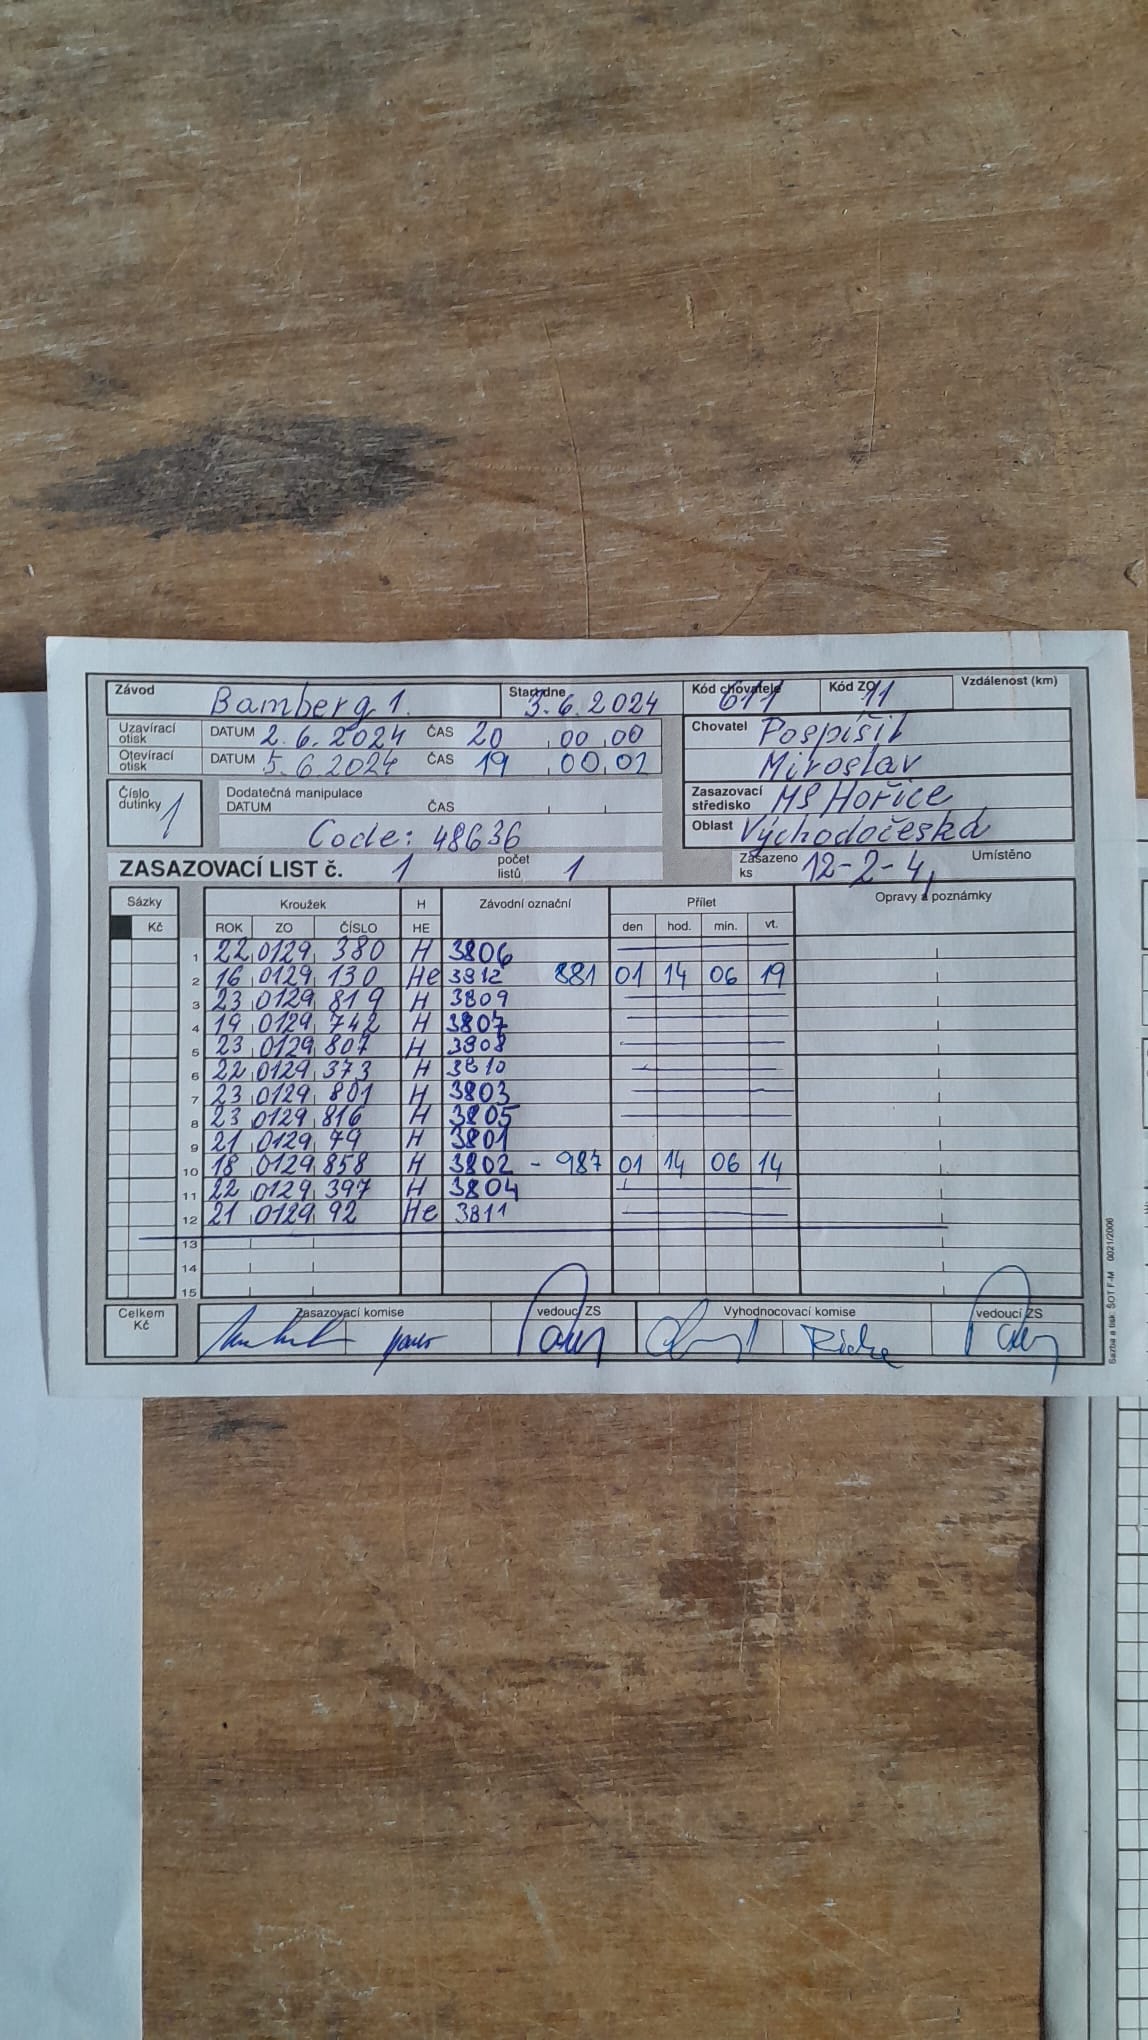 Závod Bamberg 1. Start dne 3.6.2024 Kód chovatele 611 Kód ZO 11 Vzdálenost (km)
Uzavírací otisk DATUM 2.6.2024 ČAS 20 00 00 Chovatel Pospíšil
Otevírací otisk DATUM 5.6.2024 ČAS 19 00 01 Miroslav
Číslo dutinky 1 Dodatečná manipulace DATUM ČAS Zasazovací středisko MS Hořice
Code: 48636 Oblast Východočeská
ZASAZOVACÍ LIST č. 1 počet listů 1 Zasazeno ks 12-2-4, Umístěno
Sázky Kroužek H Závodní označní Přílet Opravy a poznámky
Kč ROK ZO ČÍSLO HE den hod. min. vt.
1 22 0129 380 H 3806
2 16 0129 130 He 3812 881 01 14 06 19
3 23 0129 819 H 3809
4 19 0129 742 H 3807
5 23 0129 807 H 3808
6 22 0129 373 H 3810
7 23 0129 801 H 3803
8 23 0129 816 H 3805
9 21 0129 79 H 3801
10 18 0129 858 H 3802 - 987 01 14 06 14
11 22 0129 397 H 3804
12 21 0129 92 He 3811
13
14
15
Celkem Kč Zasazovací komise vedoucí ZS Vyhodnocovací komise vedoucí ZS
Sazba a tisk: ŠOT F-M 0021/2006